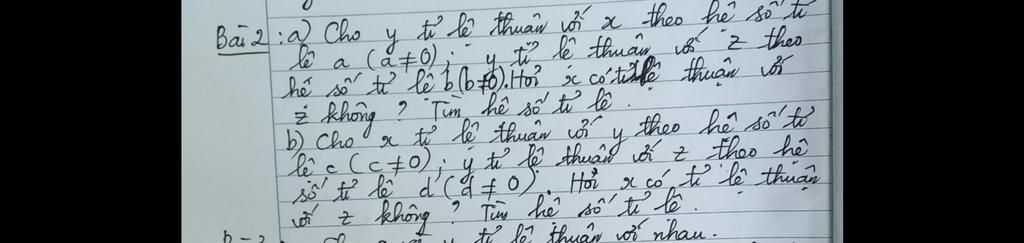 Bài 2: a) Cho y tỉ lệ thuận với x theo hệ số tỉ
lệ a (a ≠ 0); y tỉ lệ thuận với z theo
hệ số tỉ lệ b (b ≠ 0). Hỏi x có tỉ lệ thuận với
z không? Tìm hệ số tỉ lệ.
b) Cho x tỉ lệ thuận với y theo hệ số tỉ
lệ c (c ≠ 0); y tỉ lệ thuận với z theo hệ
số tỉ lệ d (d ≠ 0). Hỏi x có tỉ lệ thuận
với z không? Tìm hệ số tỉ lệ.
y tỉ lệ thuận với nhau.